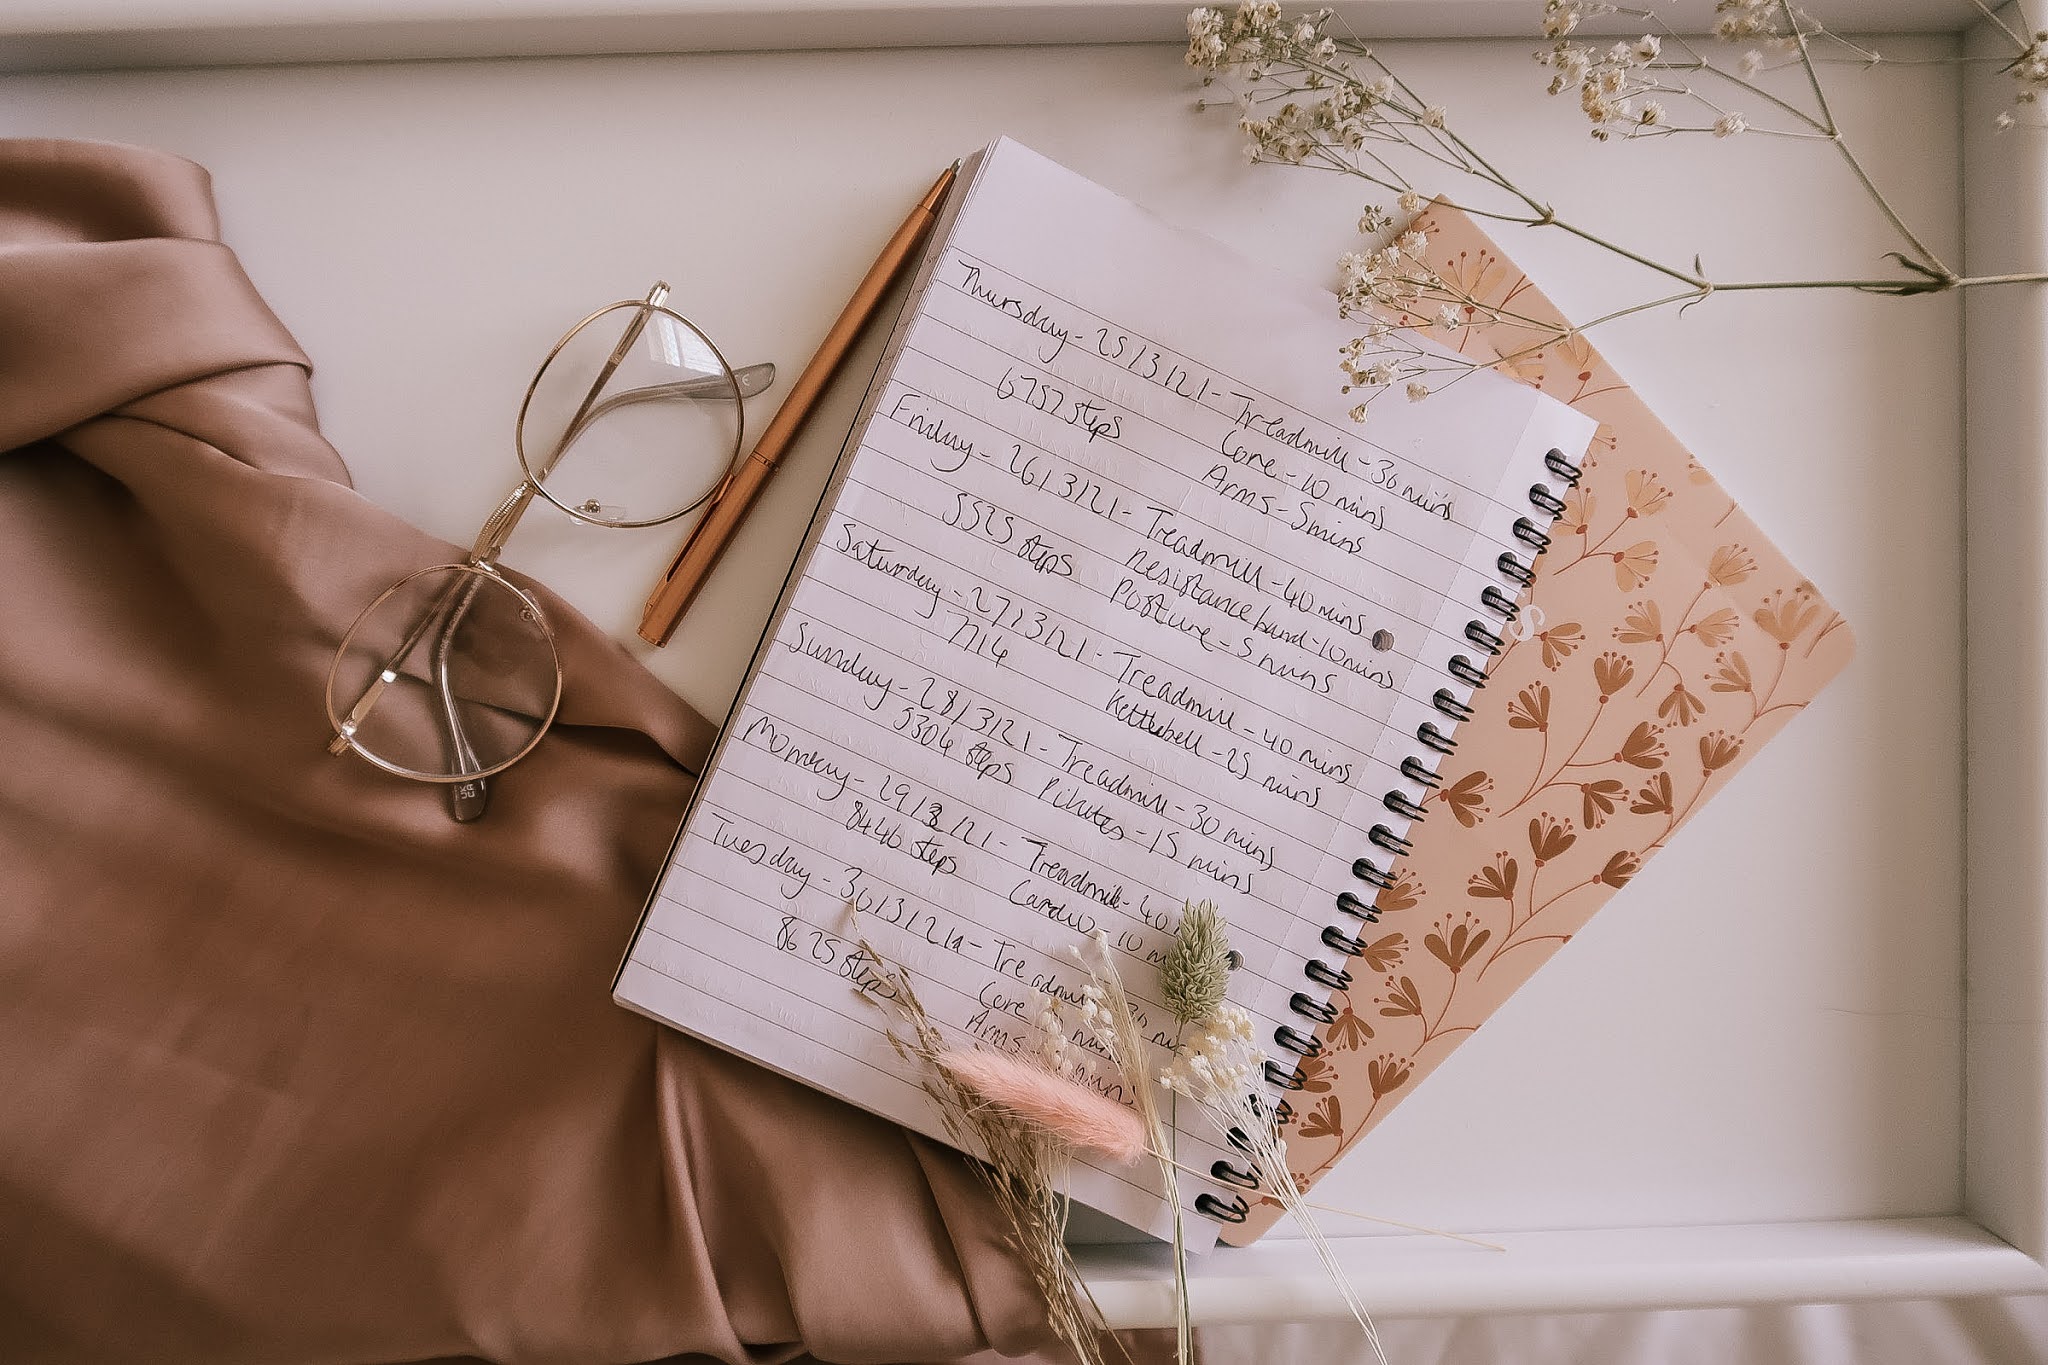 Thursday - 25/3/21 - Treadmill - 30 mins
6757 steps Core - 10 mins
Arms - 5 mins
Friday - 26/3/21 - Treadmill - 40 mins
5525 steps Resistance band - 10 mins
Posture - 5 mins
Saturday - 27/3/21 - Treadmill - 40 mins
7714 Kettlebell - 25 mins
Sunday - 28/3/21 - Treadmill - 30 mins
5304 steps Pilates - 15 mins
Monday - 29/3/21 - Treadmill - 40
8446 steps Cardio - 10
Tuesday - 30/3/21 - Treadmill 30
8625 steps Core
Arms mins
S
UK
CA